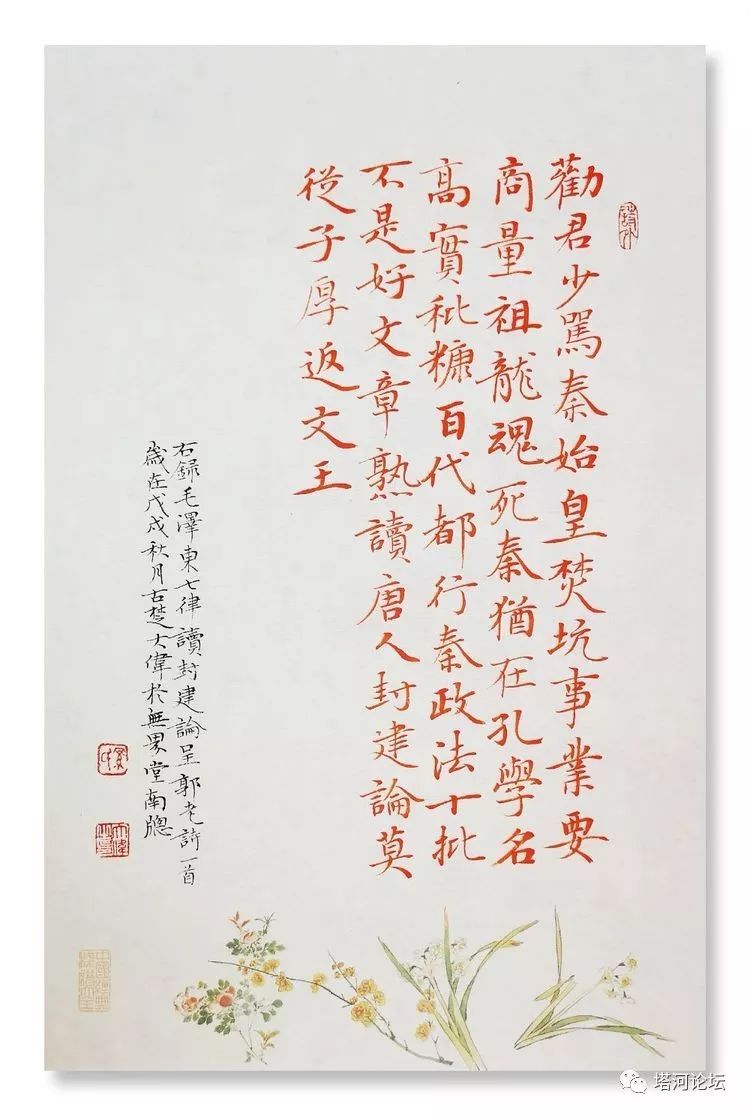 勸君少罵秦始皇焚坑事業要
商量祖龍魂死秦猶在孔學名
高實秕糠百代都行秦政法十批
不是好文章熟讀唐人封建論莫
從子厚返文王
右録毛澤東七律讀封建論呈郭老詩一首
歲在戊戌秋月古楚大偉於無界堂南牕
塔河论坛